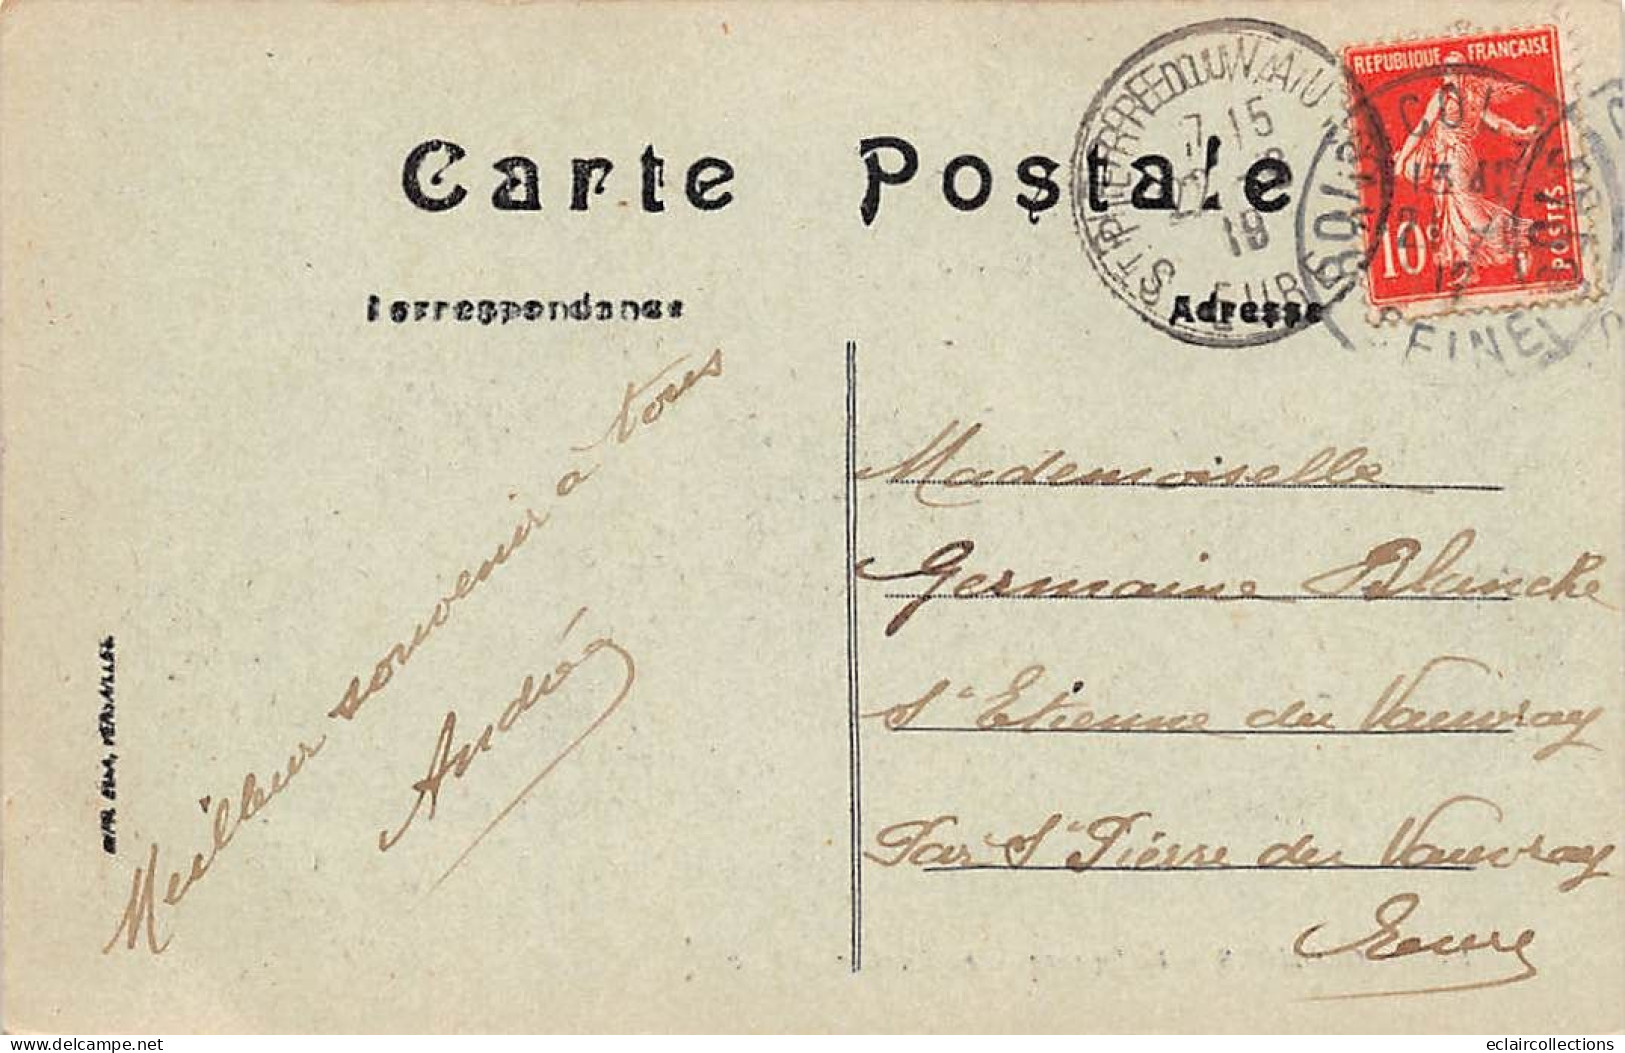 Carte Postale
Correspondance
Adresse
REPUBLIQUE FRANÇAISE
10c
POSTES
ST PIERRE-DU-VAUVRAY
7 15
19
EURE
SEINE
Meilleur souvenir à tous
Andrée
Mademoiselle
Germaine Blanche
St Etienne du Vauvray
Par St Pierre du Vauvray
Eure
delcampe.net
eclaircollections